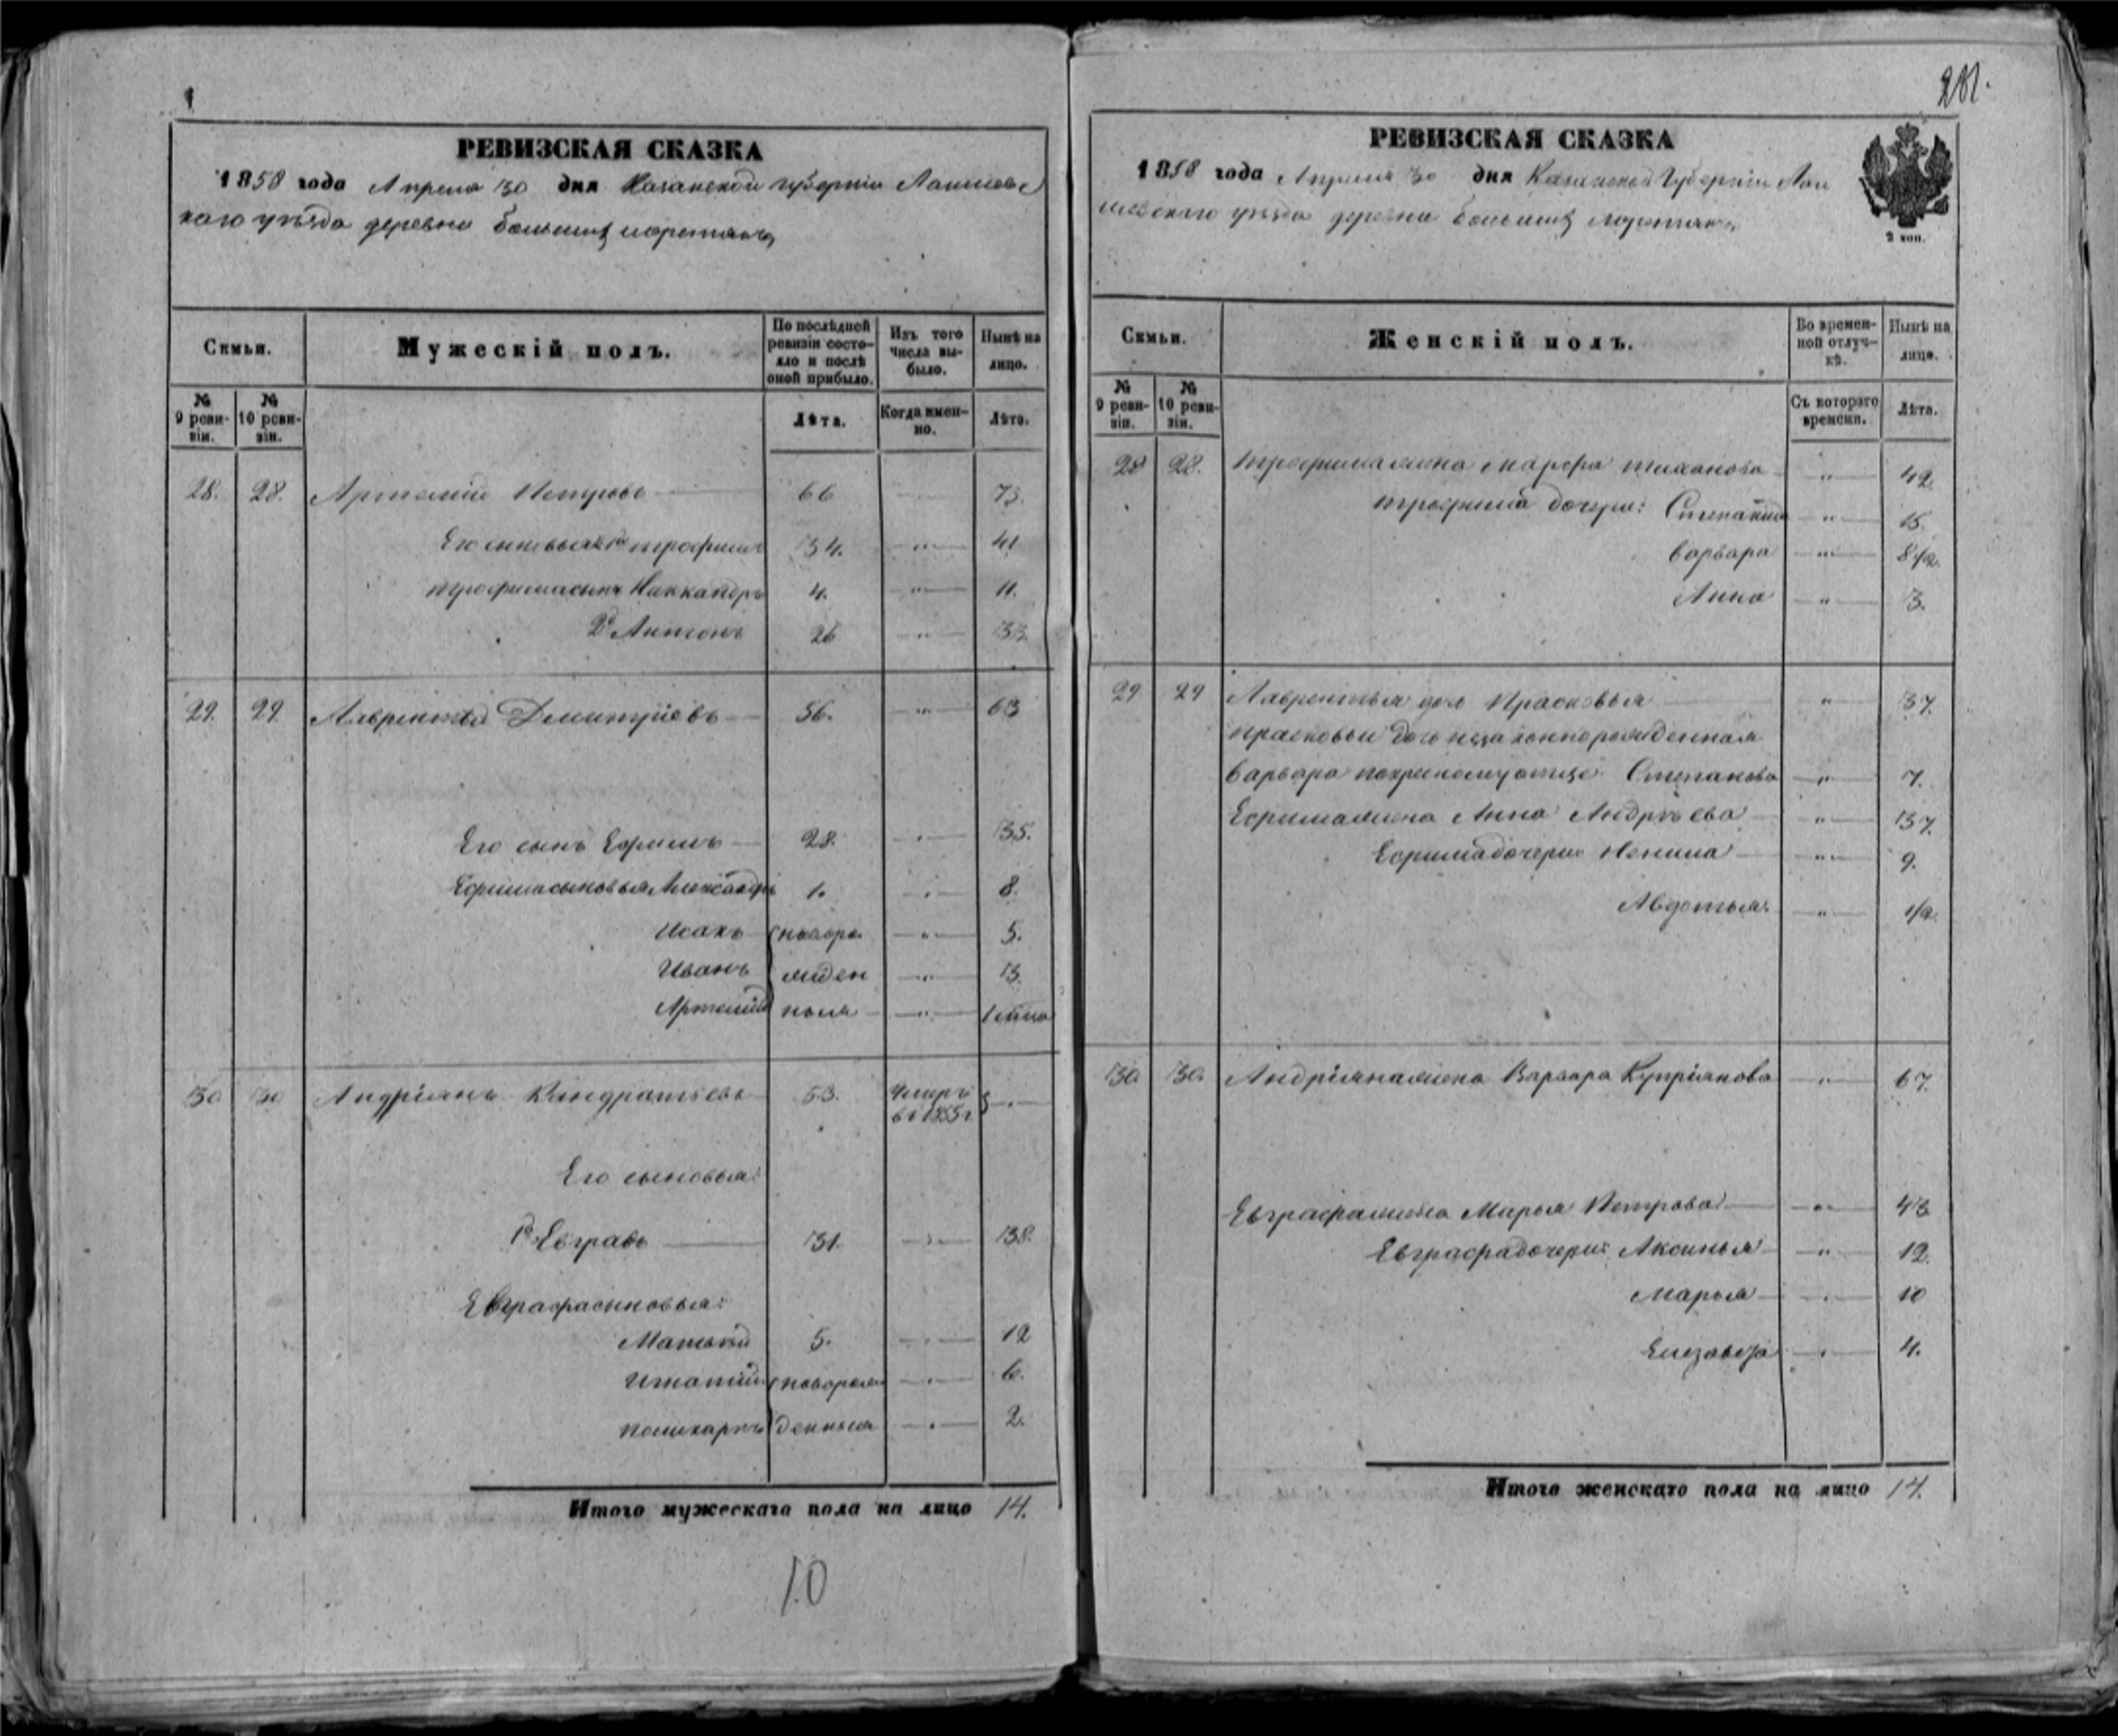 281.
РЕВИЗСКАЯ СКАЗКА
1858 года Апреля 30 дня Казанской губернiи Лаишевс
каго уѣзда деревни Большихъ
Семьи.
Мужескiй полъ.
По послѣдней ревизiи состояло и послѣ оной прибыло.
Изъ того числа выбыло.
Нынѣ на лицо.
№ 9 ревизiи.
№ 10 ревизiи.
Лѣта.
Когда именно.
Лѣта.
28. 28. Артемiй Петровъ 66 73.
Его сыновья 1й Трофимъ 34. " 41
Трофима сынъ Никкандръ 4. " 11.
2й Антонъ 26 " 33.
29. 29. Лаврентiй Дмитрiевъ 56. " 63
Его сынъ Ефимъ 28. " 35.
Ефима сыновья Александръ 1. " 8.
Исакъ новоро 5.
Иванъ жден " 3.
Артемiй ныя "
30 30 Андрiянъ Кандратьевъ 53. Умеръ
въ 1855 г. "
Его сыновья:
1й Евграфъ 31. " 38.
Евграфа сыновья:
Матвѣй 5. " 12
Ипатiй новорож " 6.
Поликарпъ денныя " 2.
Итого мужескаго пола на лицо 14.
10
РЕВИЗСКАЯ СКАЗКА
1858 года Апреля 30 дня Казанской Губернiи Лаи
шевскаго уѣзда деревни Большихъ
2 коп.
Семьи.
Женскiй полъ.
Во временной отлучкѣ.
Нынѣ на лицо.
№ 9 ревизiи.
№ 10 ревизiи.
Съ котораго времени.
Лѣта.
28 28. Трофима жена Марфа Тиханова " 42
Трофима дочери: Степанида " 15.
Варвара " 8 1/2.
Анна " 3.
29 29 Лаврентья дочь Прасковья " 37.
Прасковьи дочь незаконнорожденная
Варвара по крестному отцѣ Степанова " 7.
Ефима жена Анна Андрѣева " 37.
Ефима дочери Ненила " 9.
Авдотья. " 1/2.
30 30. Андрiяна жена Варвара Купрiянова " 67.
Евграфа жена Марья Петрова " 43
Евграфа дочери: Аксинья " 12.
Марья " 10
Елизавета " 4.
Итого женскаго пола на лицо 14.